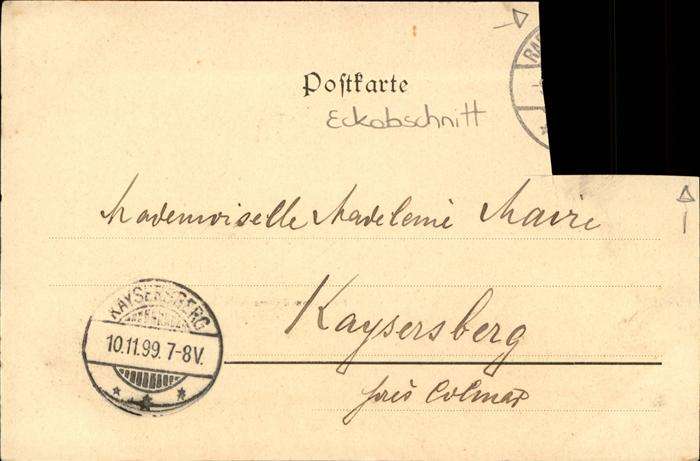 Postkarte
Eckabschnitt
Mademoiselle Madeleine Maire
Kaysersberg
près Colmar
KAYSERSBERG
10.11.99. 7-8V.